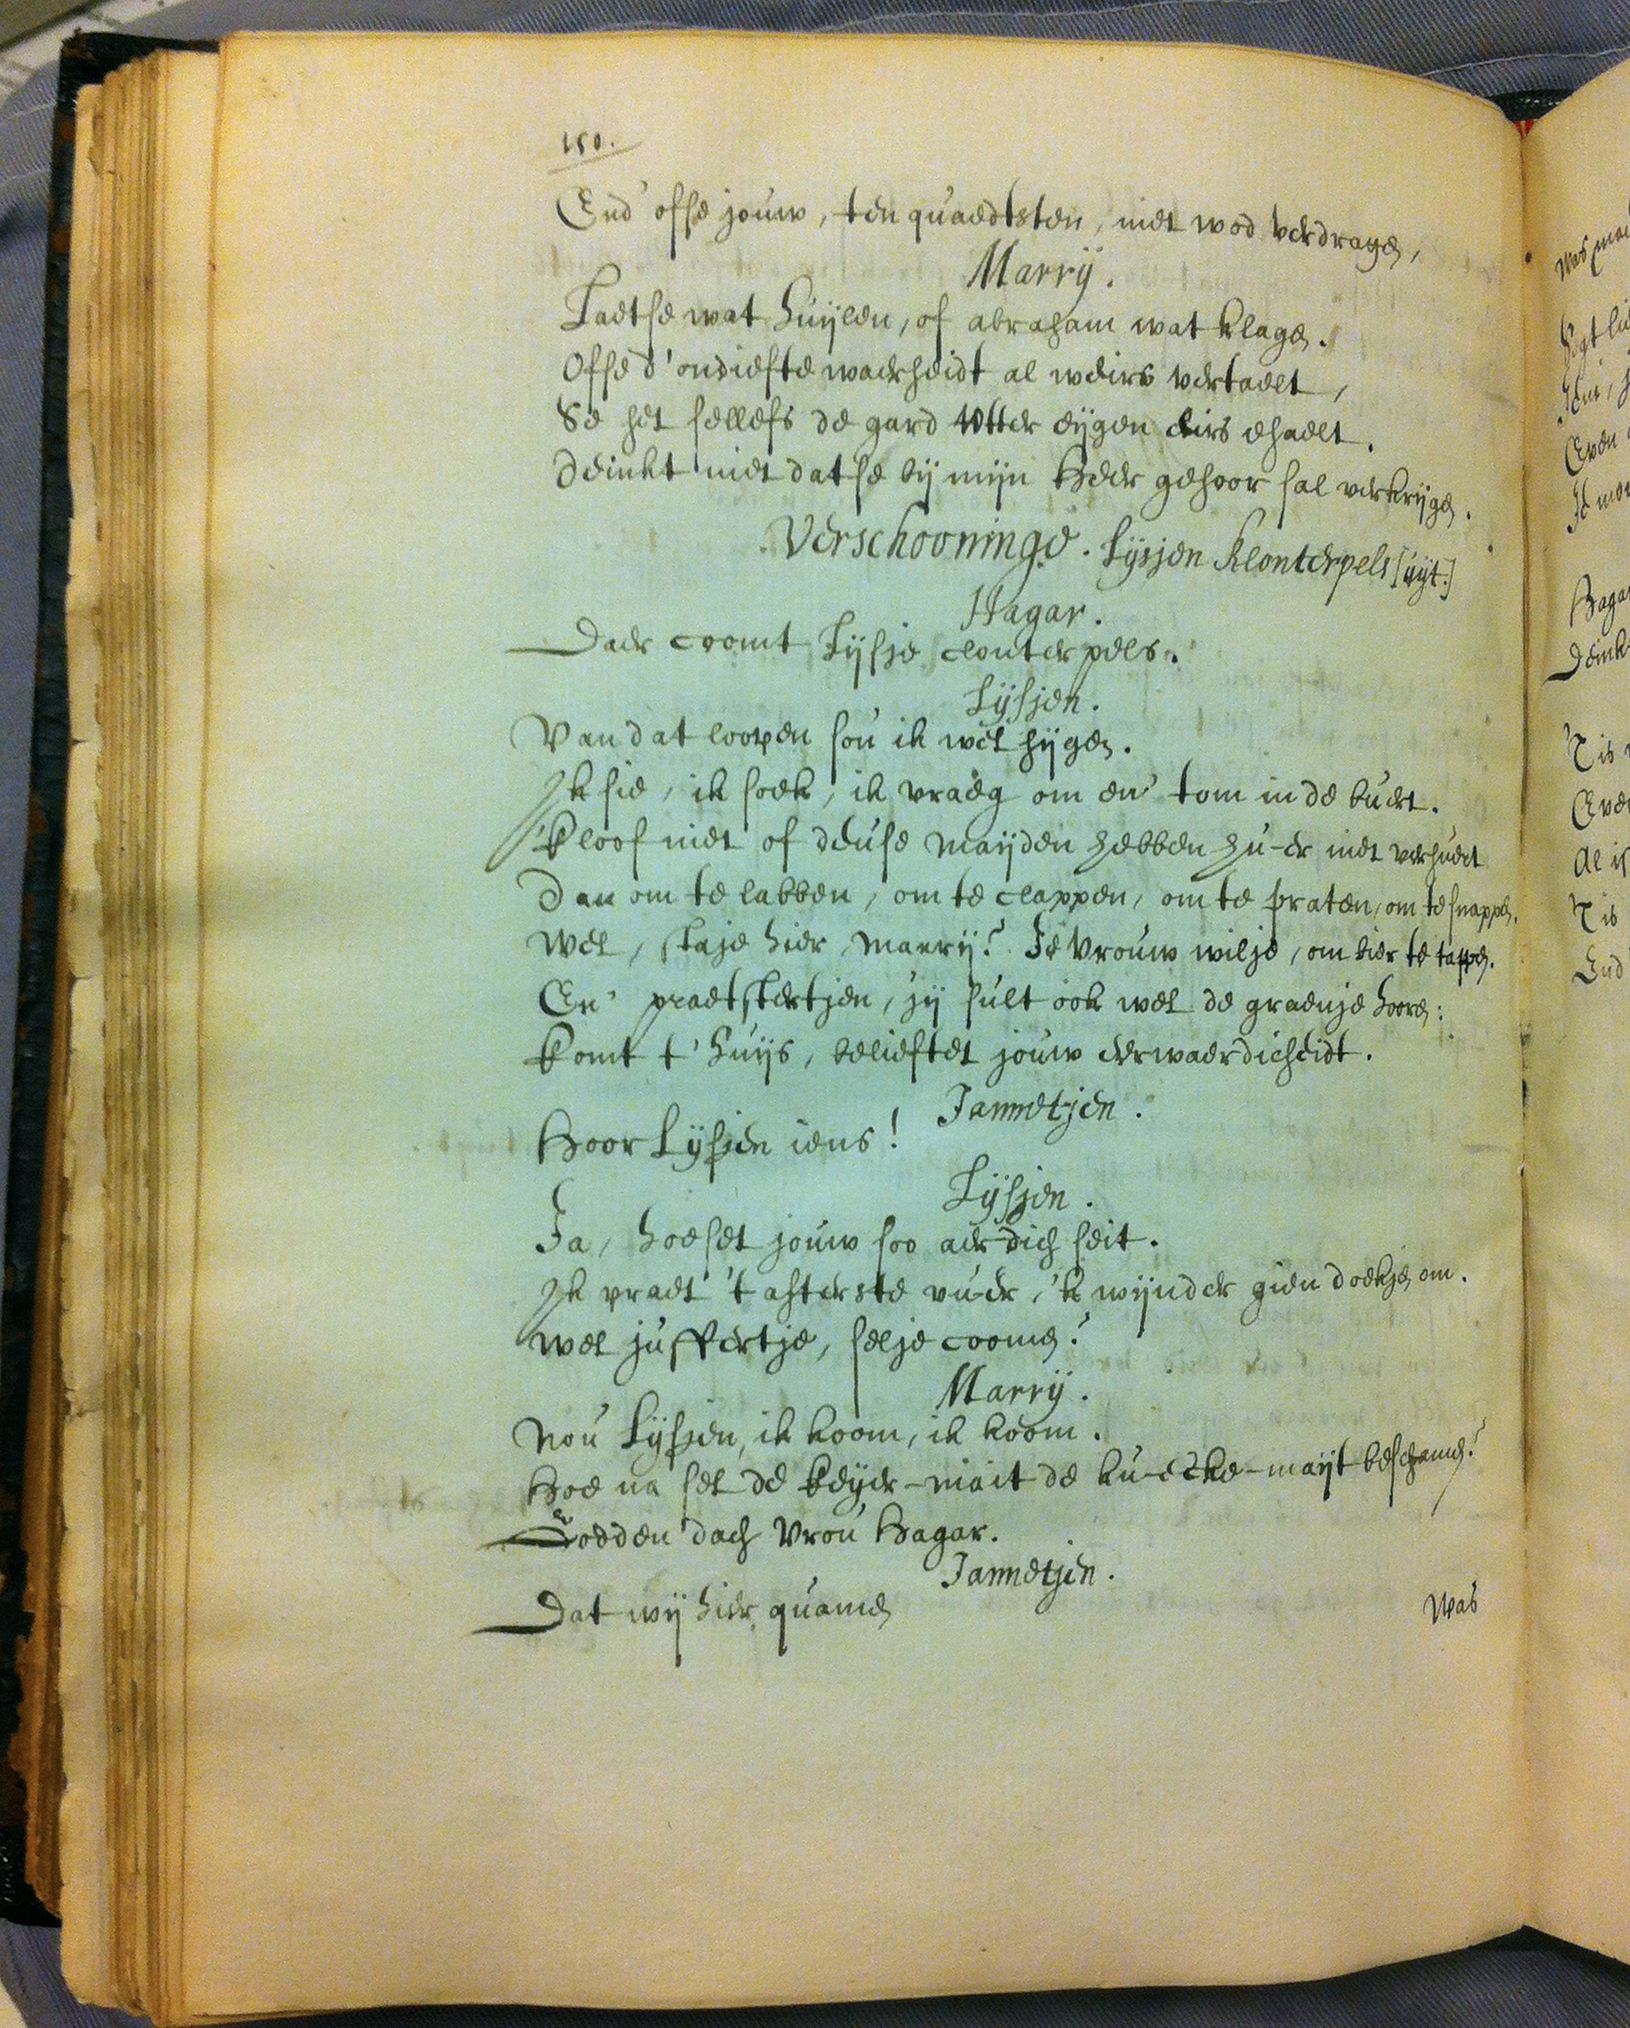 150.
End' offse jouw, ten quaedtsten, niet wod verdragen,
Marrÿ.
Laetse wat huÿlen, of abraham wat klagen.
Offe d'ondiefte waerheidt al weirs vertaelt,
Se het sellefs de gard totter eÿgen eirs ehaelt.
Deinkt niet datse bÿ mÿn Heer gehoor sal verkrÿgen.
Verschooninge. Lÿsjen Klonterpels [uÿt.]
Hagar.
Daer coomt Lÿsje clonterpels.
Lÿsjen.
Van dat loopen sou ik wel hÿgen.
Ik sie, ik soek, ik vraeg om en' tom in de buert.
'k loof niet of deuse maÿden hebben hu-er niet verhuert
Dan om te labben, om te clappen, om te praten, om te snappen.
Wel, staje hier Marrÿ? Je vrouw wilje, om bier te tappen.
En' praetstertjen, jÿ sult ook wel de graenje hooren:
Komt t'huÿs, belieftet jouw eerwaerdicheidt.
Jannetjen.
Hoor Lÿsjen iens!
Lÿsjen.
Ja, hoe set jouw soo aerdich seit.
Ik praet 't afterste vu-er, 'k wÿnder gien doekjen om.
Wel juffertje, selje coomen?
Marrÿ.
Nou Lÿsjen, ik koom, ik koom.
Hoe na sel de keÿer-mait de ku-ecke-maÿt beschamen?
Goedden dach vrou Hagar.
Jannetjen.
Dat wÿ hier quamen
Was